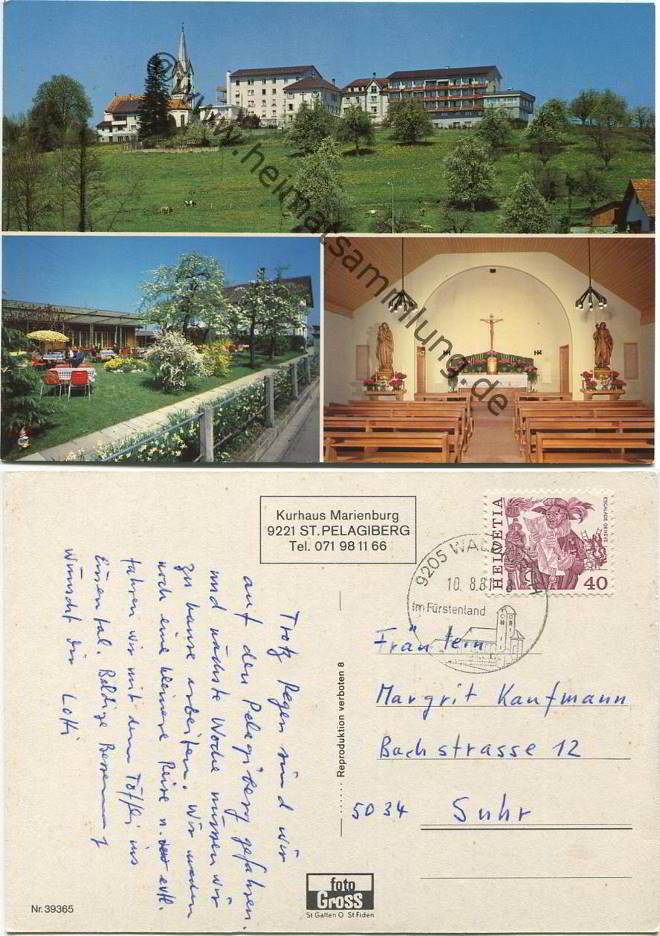 © www.heimatsammlung.de
Kurhaus Marienburg
9221 ST. PELAGIBERG
Tel. 071 98 11 66
HELVETIA
ESCALADE GENÈVE
40
9205 WALD
10. 8.81
im Fürstenland
Trotz Regen sind wir
auf den Pelagiberg gefahren.
und nächste Woche müssen wir
zu hause arbeiten. Wir machen
noch eine kleinere Reise u. evtl.
fahren wir mit dem Töffli ins
Emmental. Baldige Besserung
wünscht dir Lotti
Reproduktion verboten 8
Fräulein
Margrit Kaufmann
Bachstrasse 12
5034 Suhr
foto
GROSS
St Gallen O St Fiden
Nr. 39365